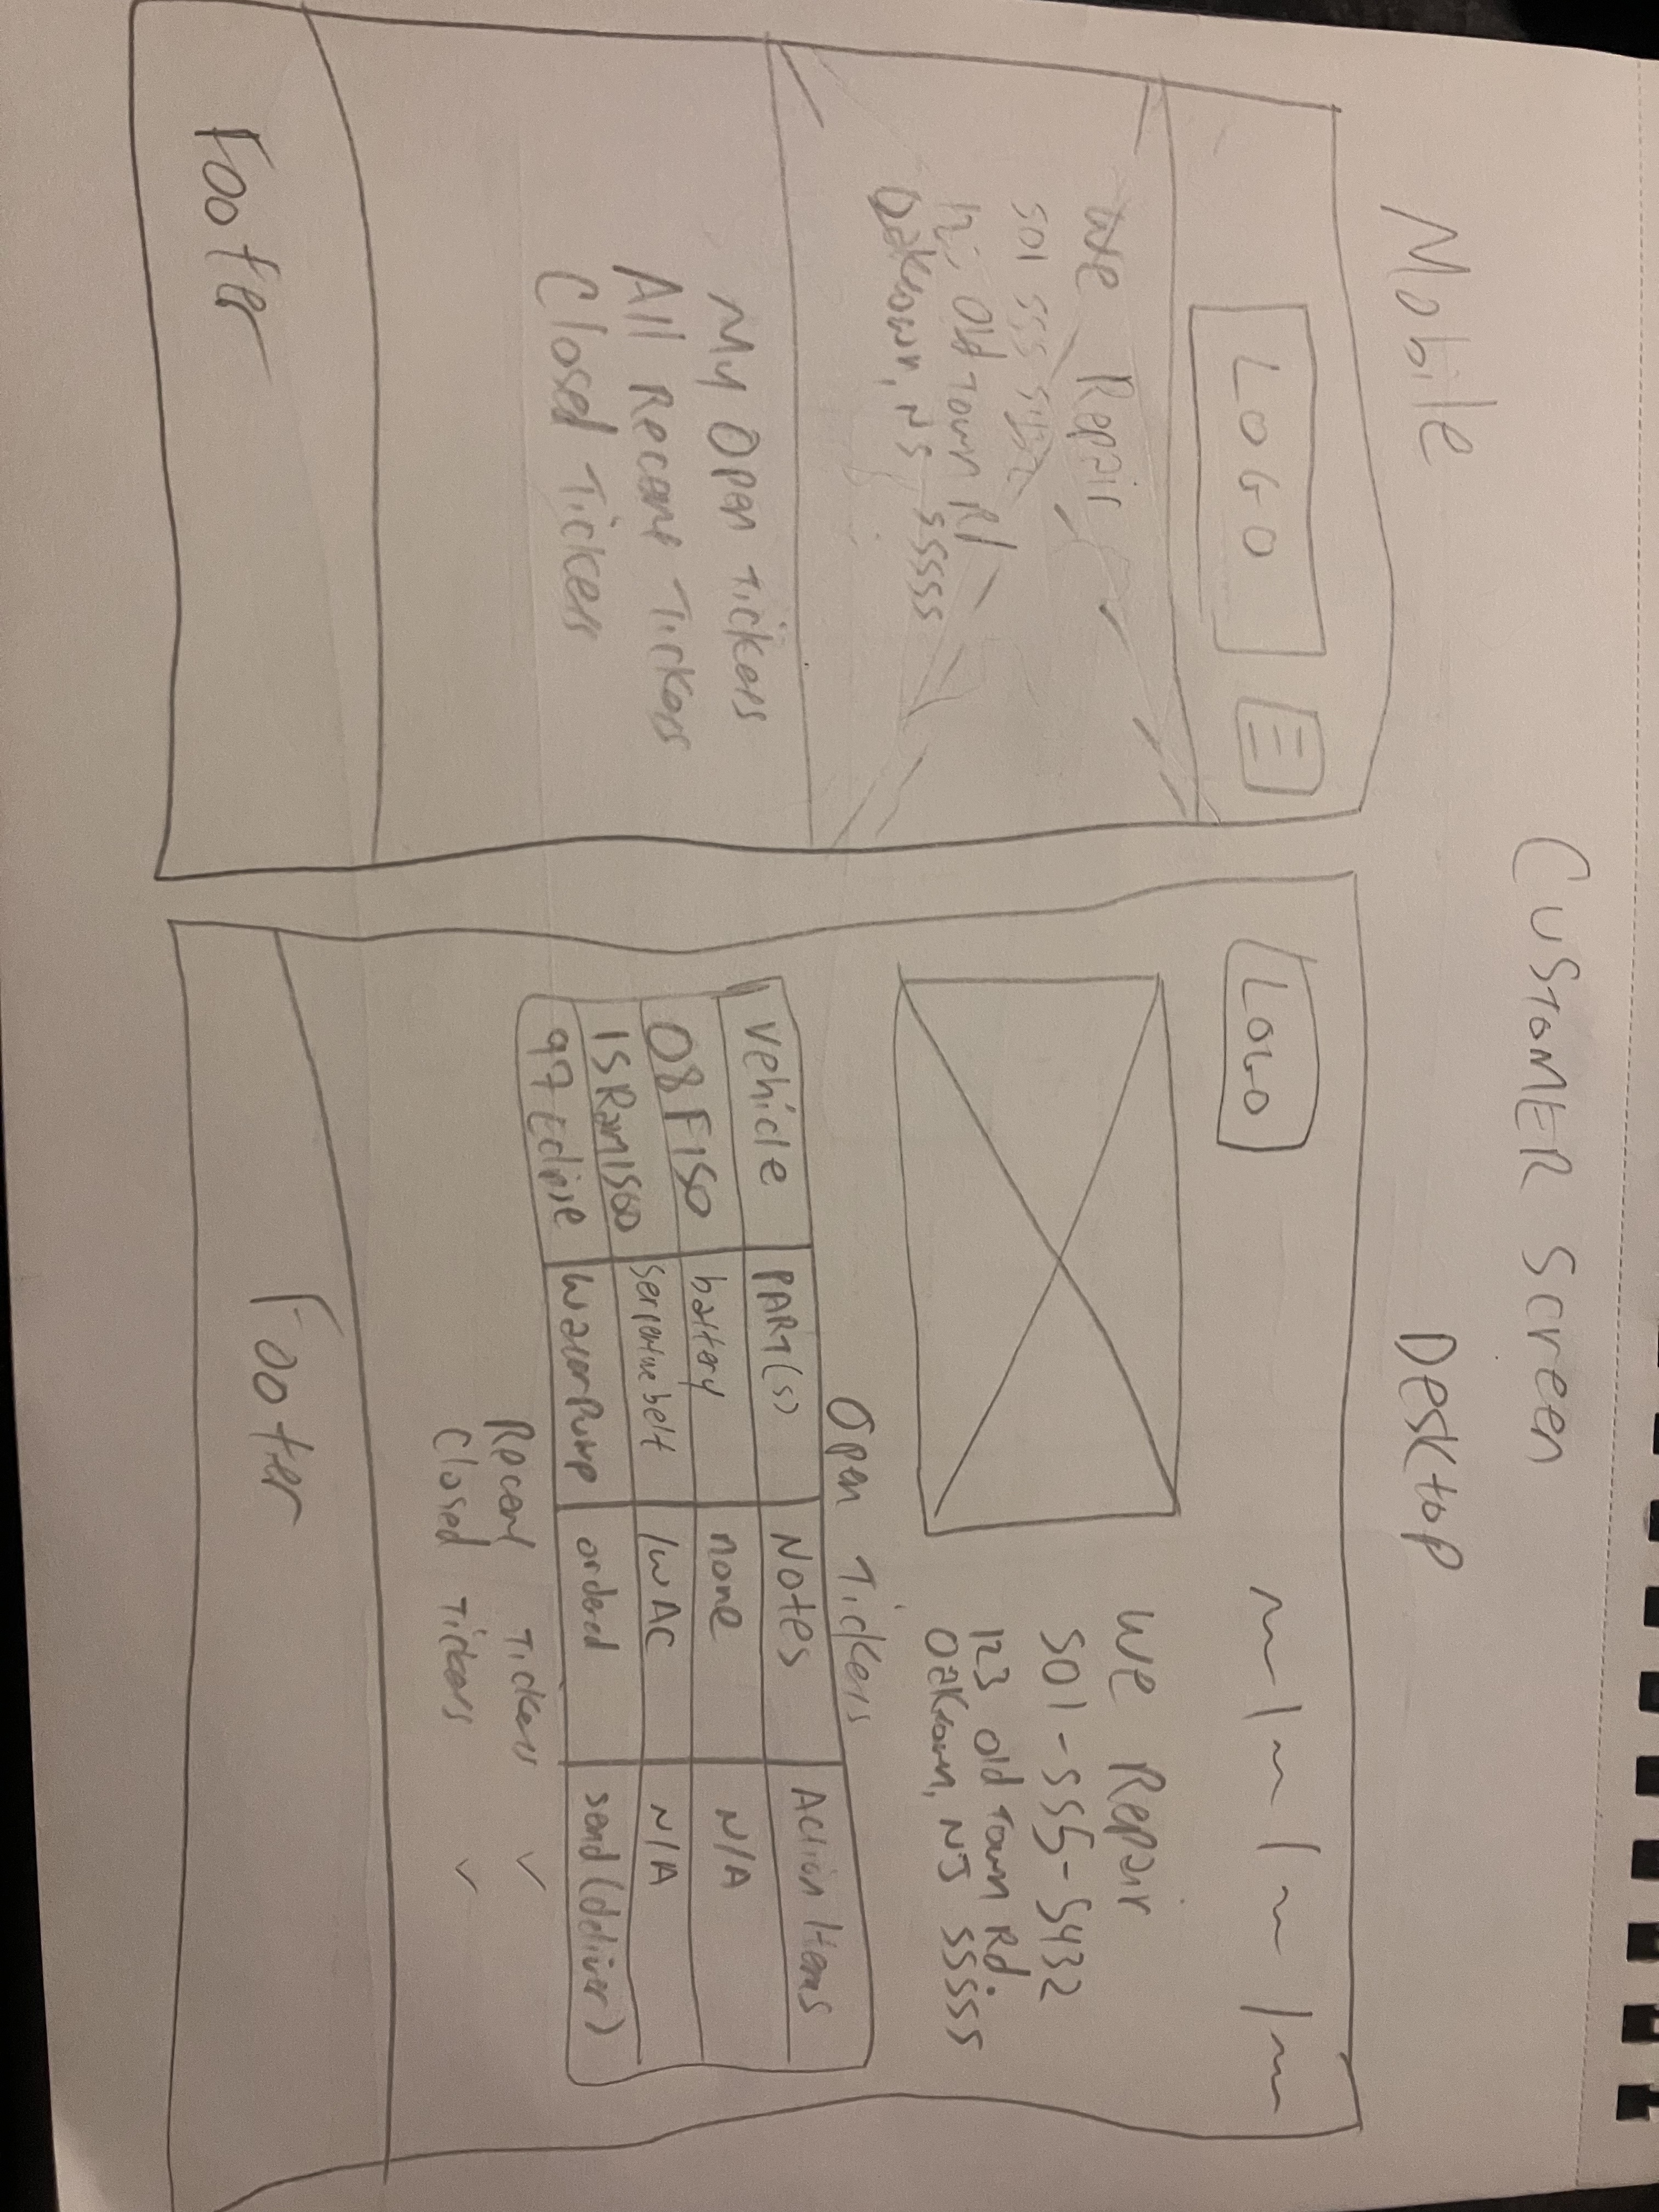 CUSTOMER Screen
Mobile
LOGO
We Repair
501 555 5432
Old Town Rd
Oaktown, NJ 55555
My Open Tickets
All Recent Tickets
Closed Tickets
Footer
Desktop
LOGO
We Repair
501-555-5432
123 old Town Rd.
Oaktown, NJ 55555
Open Tickets
Vehicle PART(s) Notes Action Items
08 F150 battery none N/A
15 Ram1500 serpentine belt /w AC N/A
97 Eclipse Waterpump ordered send (deliver)
Recent Tickets
Closed Tickets
Footer